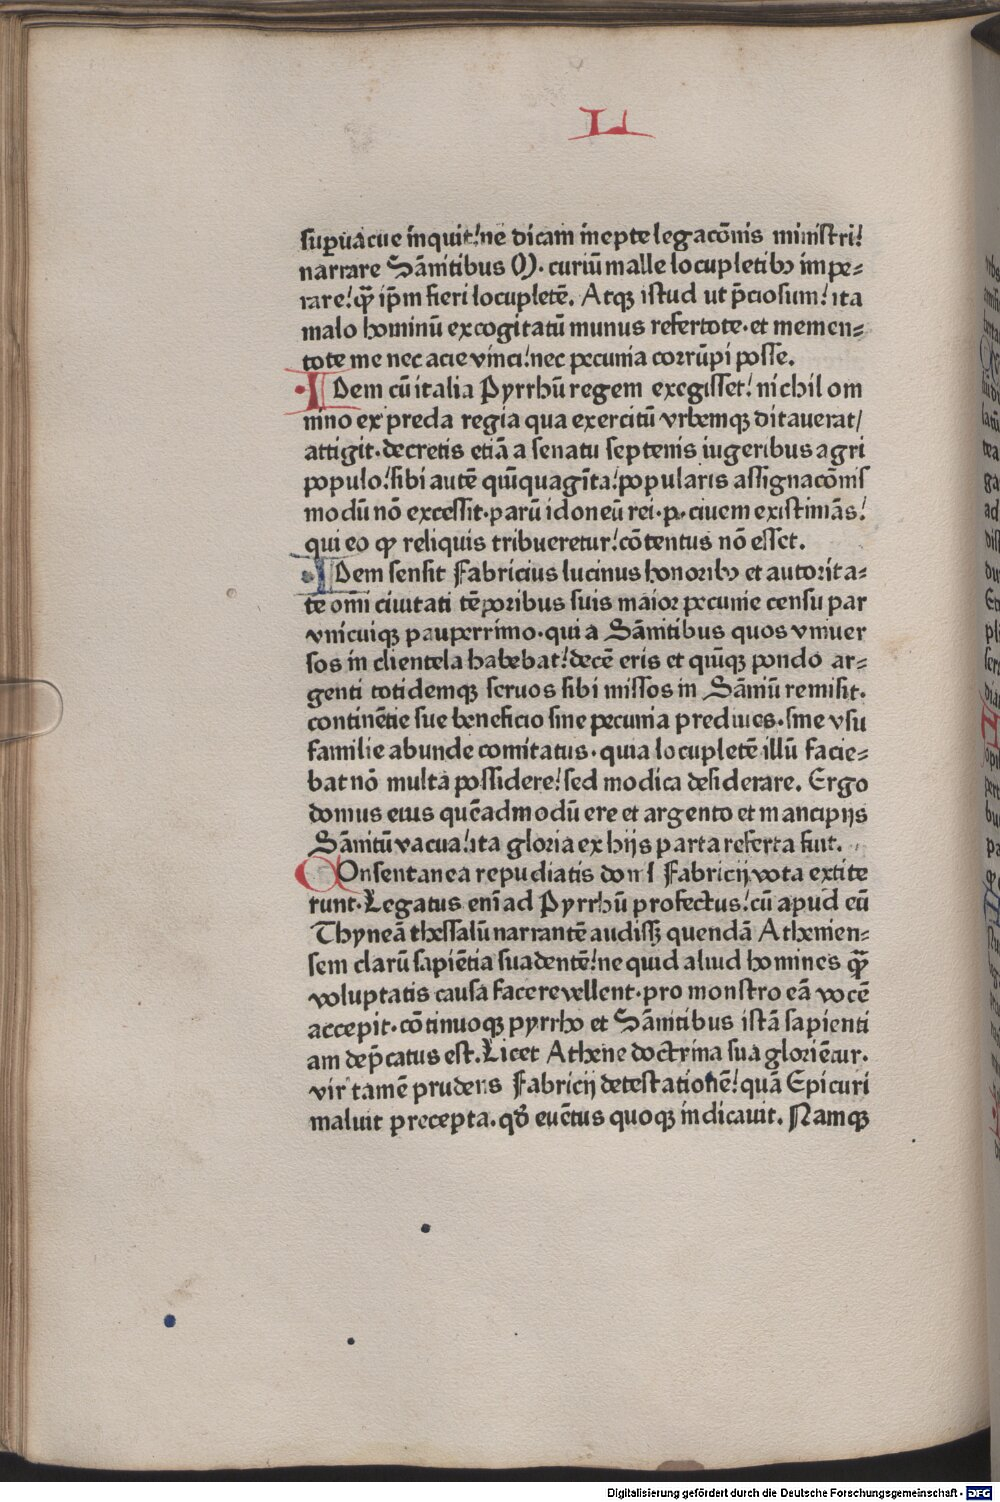 L
supuacue inquit:ne dicam inepte legacōnis ministri:
narrare Sāmitibus M. curiū malle locupletibꝰ impe-
rare:qꝫ ip̄m fieri locupletē. Atqꝫ istud ut p̄ciosum:ita
malo hominū excogitatū munus refertote. et memen-
tote me nec acie vinci:nec pecunia corrūpi posse.
IDem cū italia Pyrrhū regem exegisset: nichil om
nino ex preda regia qua exercitū vrbemqꝫ ditauerat/
attigit. decretis etiā a senatu septenis iugeribus agri
populo:sibi autē quīquagīta:popularis assignacōnis
modū nō excessit. parū idoneū rei. p. ciuem existimās:
qui eo qꝫ reliquis tribueretur:cōtentus nō esset.
IDem sensit Fabricius lucinus honoribꝰ et autorita-
te omī ciuitati tēporibus suis maior pecunie censu par
vnicuiqꝫ pauperrimo. qui a Sāmitibus quos vniuer
sos in clientela habebat:decē eris et quīqꝫ pondo ar-
genti totidemqꝫ seruos sibi missos in Sāniū remisit.
continētie sue beneficio sine pecunia prediues. sine vsu
familie abunde comitatus. quia locupletē illū facie-
bat nō multa possidere:sed modica desiderare. Ergo
domus eius quēadmodū ere et argento et mancipijs
Sāmitū vacua:ita gloria ex hijs parta referta fuit.
COnsentanea repudiatis Fabricij vota extite
runt. Legatus enī ad Pyrrhū profectus:cū apud eū
Thyneā thessalū narrantē audissꝫ quendā Athenien-
sem clarū sapiētia suadentē:ne quid aliud homines qꝫ
voluptatis causa facere vellent. pro monstro eā vocē
accepit. cōtinuoqꝫ pyrrho et Sāmitibus istā sapienti
am dep̄catus est. Licet Athene doctrina sua gloriētur.
vir tamē prudens Fabricij detestationē:quā Epicuri
maluit precepta. qd̄ euētus quoqꝫ indicauit. Namqꝫ
Digitalisierung gefördert durch die Deutsche Forschungsgemeinschaft - DFG